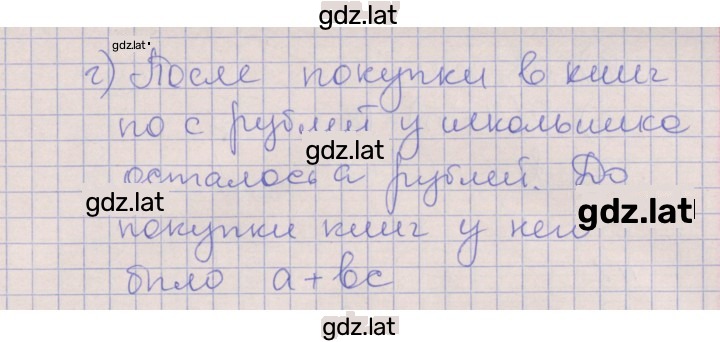 gdz.lat
gdz.lat
г) После покупки в книг
по с рублей у школьника
gdz.lat
осталось а рублей. До
gdz.lat
gdz.lat
покупки книг у него
было а + вс
gdz.lat